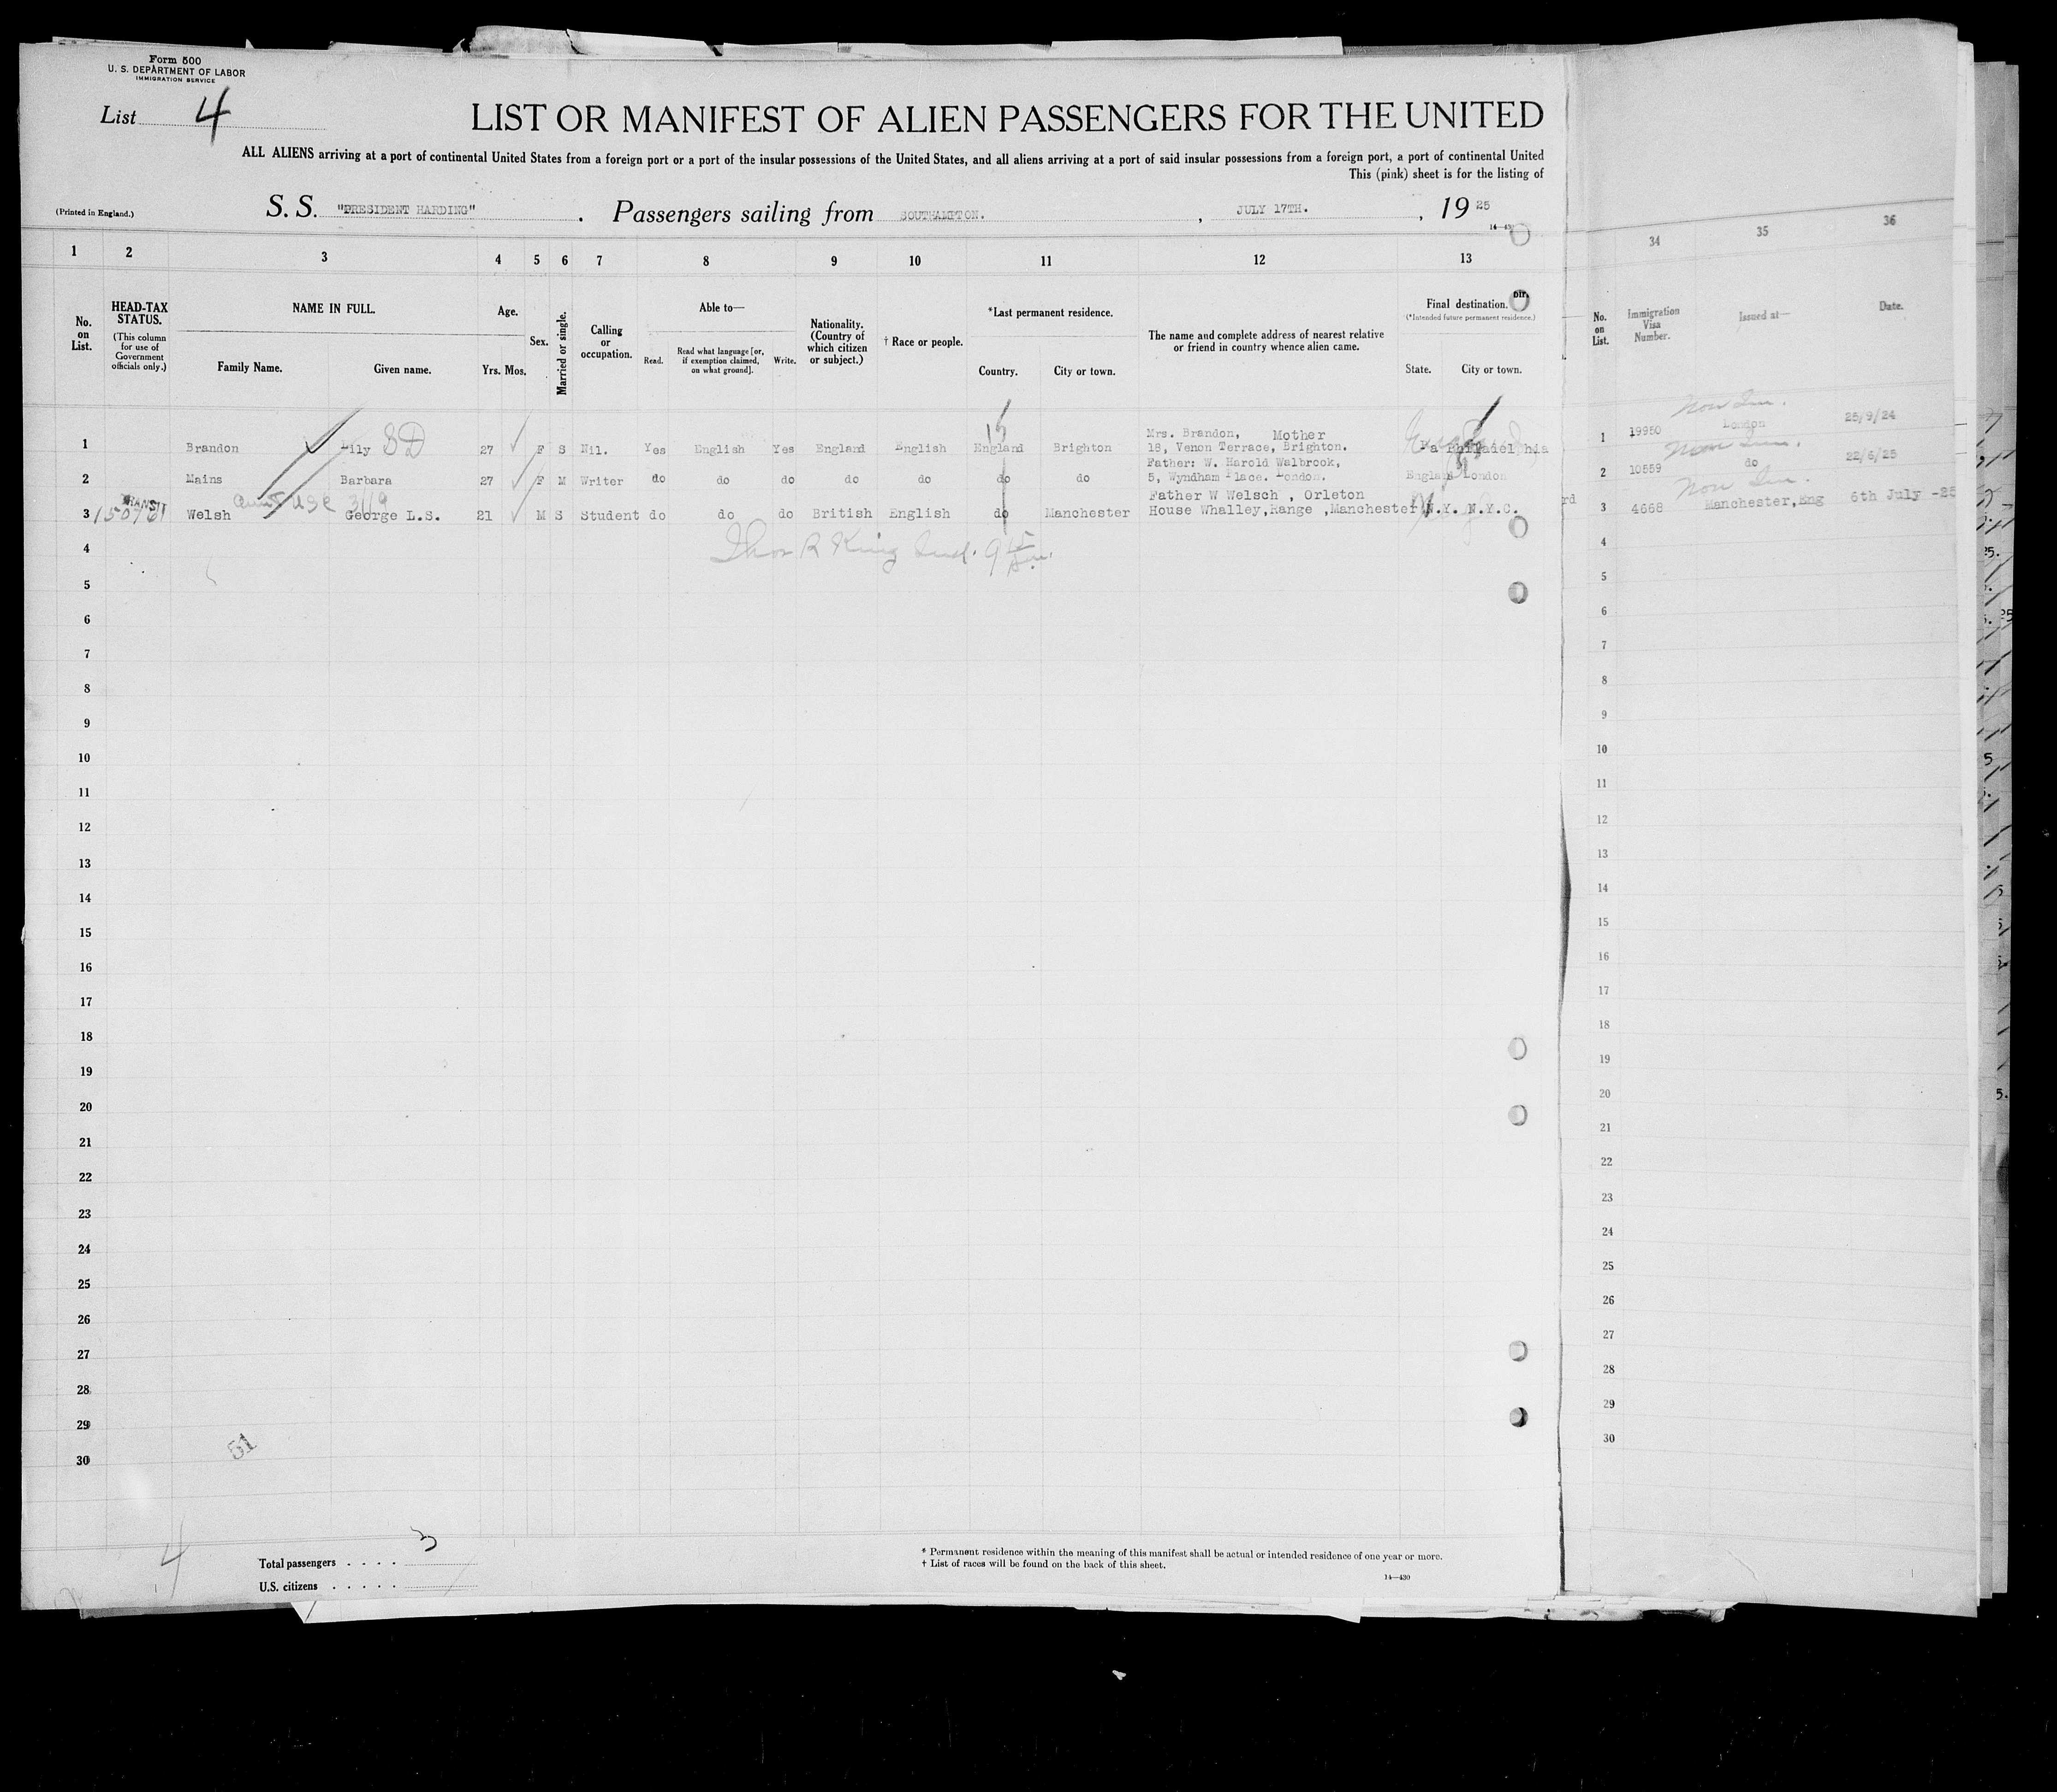 Form 500
U. S. DEPARTMENT OF LABOR
IMMIGRATION SERVICE
List 4
LIST OR MANIFEST OF ALIEN PASSENGERS FOR THE UNITED
ALL ALIENS arriving at a port of continental United States from a foreign port or a port of the insular possessions of the United States, and all aliens arriving at a port of said insular possessions from a foreign port, a port of continental United
This (pink) sheet is for the listing of
(Printed in England.)
S. S. "PRESIDENT HARDING" . Passengers sailing from SOUTHAMPTON. , JULY 17TH. , 19 25
1 2 3 4 5 6 7 8 9 10 11 12 13 34 35 36
No. on List.
HEAD-TAX STATUS.
(This column for use of Government officials only.)
NAME IN FULL.
Family Name. Given name.
Age.
Yrs. Mos.
Sex.
Married or single.
Calling or occupation.
Able to—
Read. Read what language [or, if exemption claimed, on what ground]. Write.
Nationality. (Country of which citizen or subject.)
† Race or people.
*Last permanent residence.
Country. City or town.
The name and complete address of nearest relative or friend in country whence alien came.
Final destination. Dir.
(*Intended future permanent residence.)
State. City or town.
No. on List.
Immigration Visa Number.
Issued at—
Date.
1 Brandon Lily SD 27 F S Nil. Yes English Yes England English England Brighton Mrs. Brandon, Mother
18, Venon Terrace, Brighton. Pa Philadel hia 1 19950 London 25/9/24
2 Mains Barbara 27 F M Writer do do do do do do do Father: W. Harold Walbrook,
5, Wyndham Place. London. England London 2 10559 do 22/6/25
TRANSIT
3 Welsh George L.S. 21 M S Student do do do British English do Manchester Father W Welsch , Orleton
House Whalley,Range ,Manchester N.Y. N.Y.C. rd 3 4668 Manchester,Eng 6th July -25
4 Thos R King 4
5 5
6 6
7 7
8 8
9 9
10 10
11 11
12 12
13 13
14 14
15 15
16 16
17 17
18 18
19 19
20 20
21 21
22 22
23 23
24 24
25 25
26 26
27 27
28 28
29 29
30 30
51
4
Total passengers . . . . 3
U.S. citizens . . . . .
* Permanent residence within the meaning of this manifest shall be actual or intended residence of one year or more.
† List of races will be found on the back of this sheet.
14—430